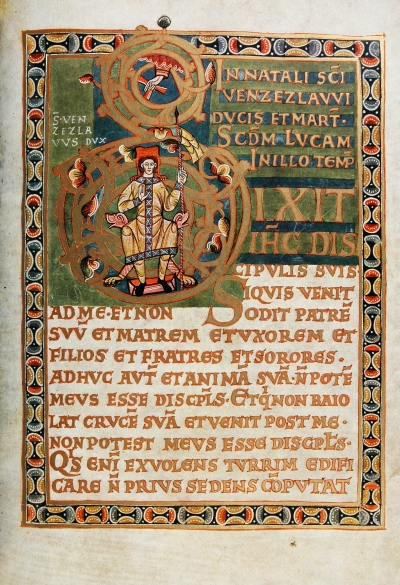 IN NATALI SC̄I
VENZEZLAVVI
DVCIS ET MART·
SC̄DM LVCAM
IN ILLO TEMP̄
S̄·VEN
ZEZLA
VVS DVX
DIXIT
IH̄C DIS
CIPVLIS SVIS
SIQVIS VENIT
AD ME·ET NON ODIT PATRĒ
SVV̄ ET MATREM ET VXOREM ET
FILIOS ET FRATRES ET SORORES·
ADHVC AVT̄ ET ANIMĀ SVĀ·N̄ POTĒ
MEVS ESSE DISCPL̄S·ET Q̄ NON BAIO
LAT CRVCĒ SVĀ ET VENIT POST ME·
NON POTEST MEVS ESSE DISCPL̄S·
QS̄ ENĪ EX VOLENS TVRRIM EDIFI
CARE N̄ PRIVS SEDENS CŌPVTAT